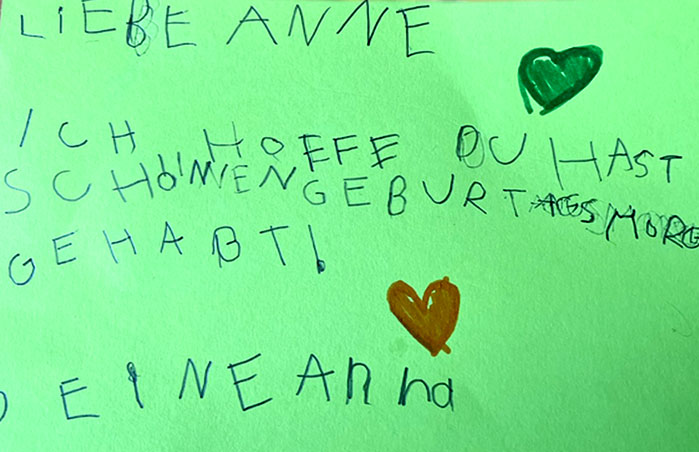 LIEBE ANNE
ICH HOEFFE DU HAST
SCHÖNEN GEBURTAGSMORG
GEHABT!
DEINE Anna